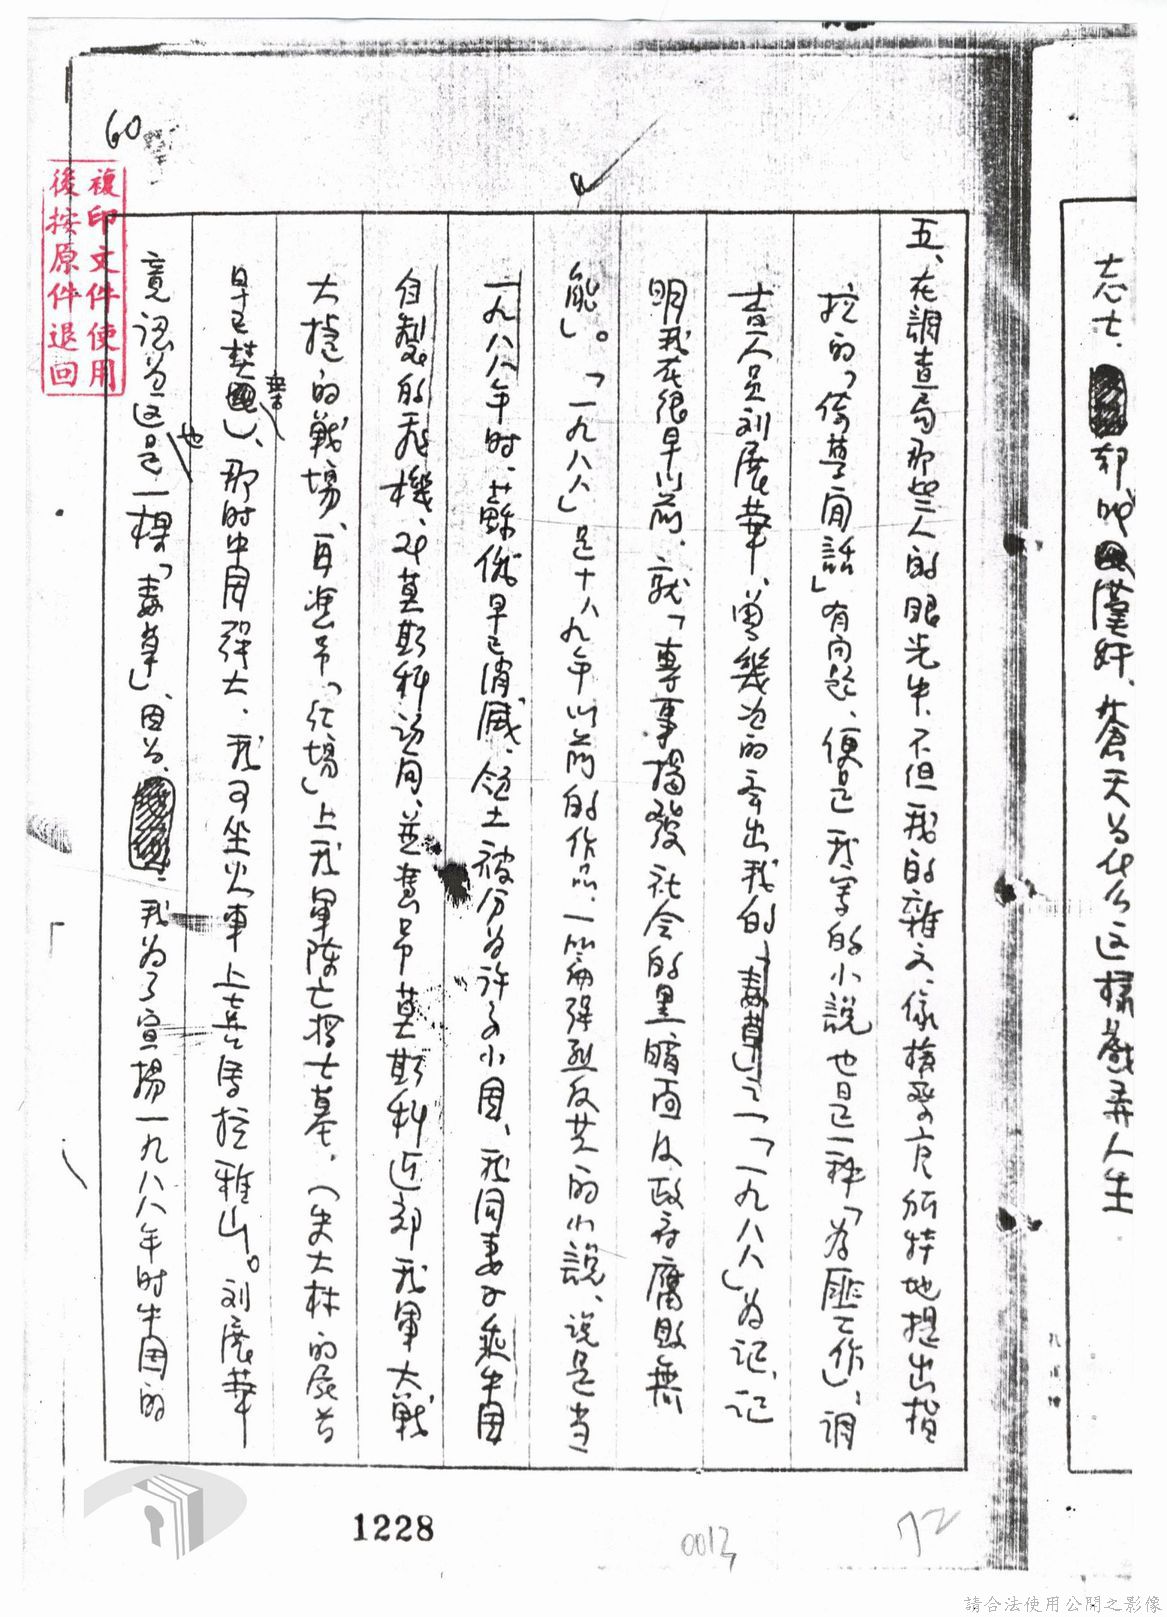 志士、却成漢奸、蒼天为什么这樣戲弄人生
五、在調查局那些人的眼光中、不但我的雜文、像檢察官所特地提出指
控的「倚夢閒話」有问题、便是我寫的小說也是一种「为匪工作」、调
查人员刘展華、曾幾次的舉出我的「毒草」之一「一九八八」为记、记
明我在很早以前、就「專事揭發社会的黑暗面及政府腐敗無
能」。「一九八八」是十八九年以前的作品、一篇强烈反共的小說、说是当
一九八八年时、蘇俄早已消滅、領土被分为許多小国、我同妻子乘中国
自製的飛機、到莫斯科访问、並憑吊莫斯科近郊我軍大戰
大捷的戰場、再憑吊「红場」上我軍陣亡將士墓、(史大林的屍首
早已焚棄)、那时中国强大、我可坐火車上喜馬拉雅山。刘展華
竟認为这也是一棵「毒草」、因为、我为了宣揚一九八八年时中国的
60
複印文件使用
後按原件退回
1228
0013
72
請合法使用公開之影像